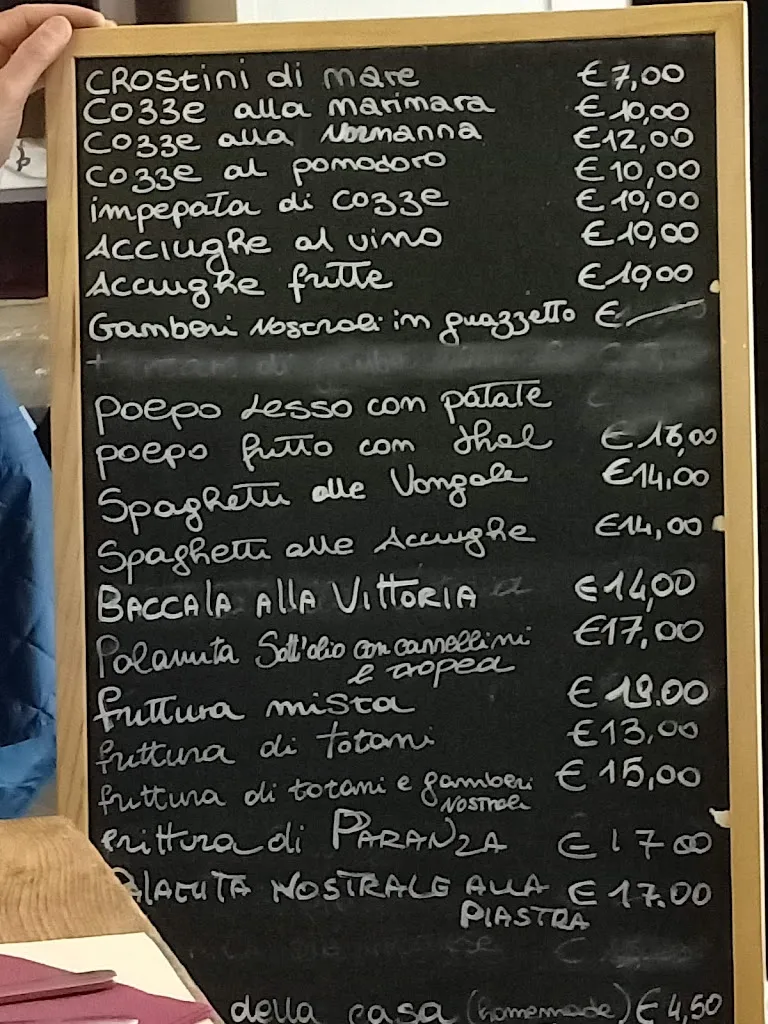 CROStini di mare €7,00
Cozze alla marimara €10,00
Cozze alla Normanna €12,00
Cozze al pomodoro €10,00
impepata di Cozze €10,00
Acciughe al vino €10,00
Acciughe fritte €10,00
Gamberi Nostrali in guazzetto €
poepo Lesso con patate
poepo fritto con thal €16,00
Spaghetti alle Vongole €14,00
Spaghetti alle Acciughe €14,00
BACCALA ALLA VITTORIA €14,00
Palamita Sott'olio con cannellini €17,00
e tropea
frittura mista €18.00
frittura di totani €13,00
frittura di totami e gamberi €15,00
NOSTRali
frittura di PARANZA €17 00
PALAMITA NOSTRALE ALLA €17.00
PIASTRA
della casa (homemade) €4,50